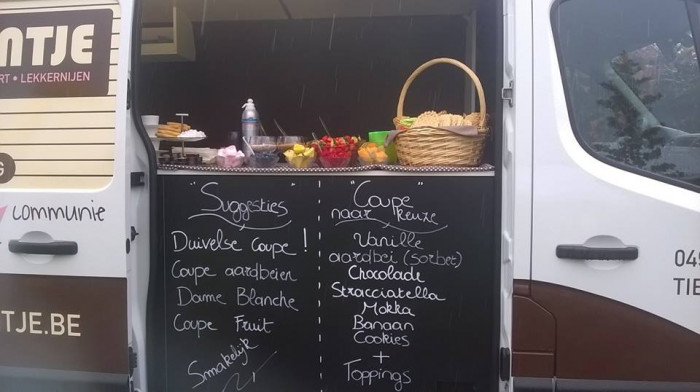 NTJE
RT • LEKKERNIJEN
G
communie
TJE.BE
"Suggesties"
Duivelse coupe !
Coupe aardbeien
Dame Blanche
Coupe Fruit
Smakelijk
"Coupe"
naar keuze
Vanille
aardbei (sorbet)
Chocolade
Stracciatella
Mokka
Banaan
Cookies
+
Toppings
049
TIE